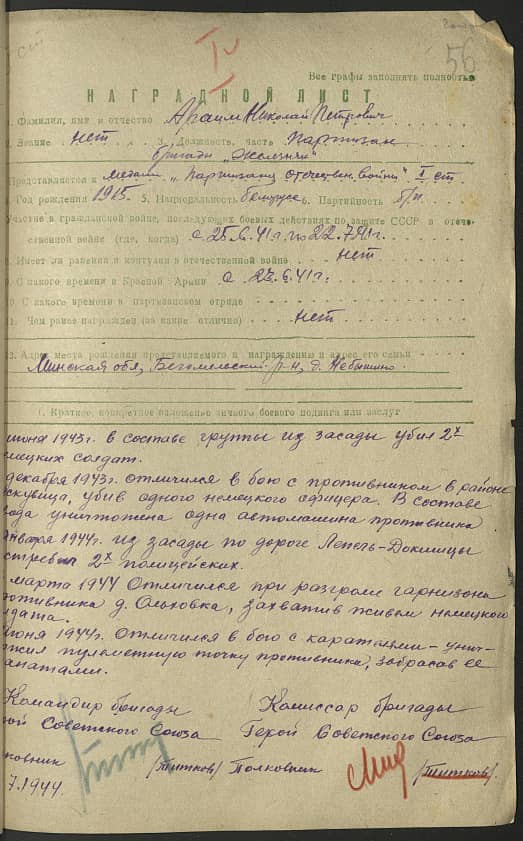 56
IV
Все графы заполнять полностью
НАГРАДНОЙ ЛИСТ
1. Фамилия, имя и отчество Арайм Николай Петрович
2. Звание нет 3. Должность, часть партизан
бригады „Железняк"
Представляется к медали „Партизану отечествен. войны" I ст.
Год рождения 1915 5. Национальность белорус 6. Партийность б/п
Участие в гражданской войне, последующих боевых действиях по защите СССР в отече-
ственной войне (где, когда) с 25.6.41г. по 22.7.41г.
8. Имеет ли ранения и контузии в отечественной войне нет
9. С какого времени в Красной Армии с 23.6.41г.
10. С какого времени в партизанском отряде
11. Чем ранее награжден (за какие отличия) нет
12. Адрес места рождения представляемого к награждению и адрес его семьи
Минская обл, Бегомельский р-н, д. Небышино.
I. Краткое, конкретное изложение личного боевого подвига или заслуг
июня 1943г. в составе группы из засады убил 2х
мецких солдат.
декабря 1943г. отличился в бою с противником в районе
убив одного немецкого офицера. В составе
вода уничтожена одна автомашина противника
января 1944г. из засады по дороге Лепель-Докшицы
стрелял 2х полицейских.
марта 1944 Отличился при разгроме гарнизона
ротивника д. Ольховка, захватив живым немецкого
лдата.
июня 1944г. отличился в бою с карателями - унич-
жил пулеметную точку противника, забросав ее
анатами.
Командир бригады Комиссар бригады
ой Советского Союза Герой Советского Союза
ковник /Титков/ Полковник /Титков/.
7.1944.